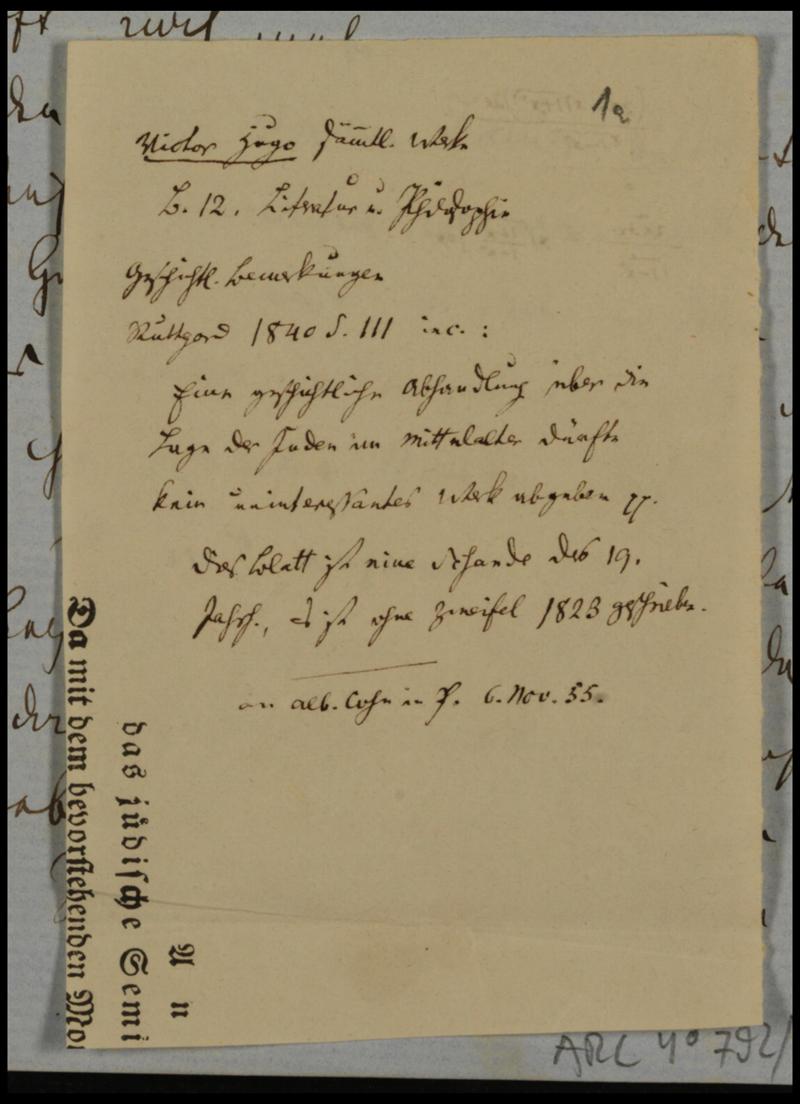 1a
Victor Hugo sämtl. Werke
B. 12. Literatur u. Philosophie
Geschichtl. Bemerkungen
Stuttgard 1840 S. 111 inc. :
Eine geschichtliche Abhandlung über die
Lage der Juden im Mittelalter dürfte
kein uninteressantes Werk abgeben pp.
Das Blatt ist eine Schande des 19.
Jahrh., es ist ohne Zweifel 1823 geschrieben.
an alb. Cohn in P. 6. Nov. 55.
Da mit dem bevorstehenden Mo
das jüdische Semi
A n
ARC 4° 792/